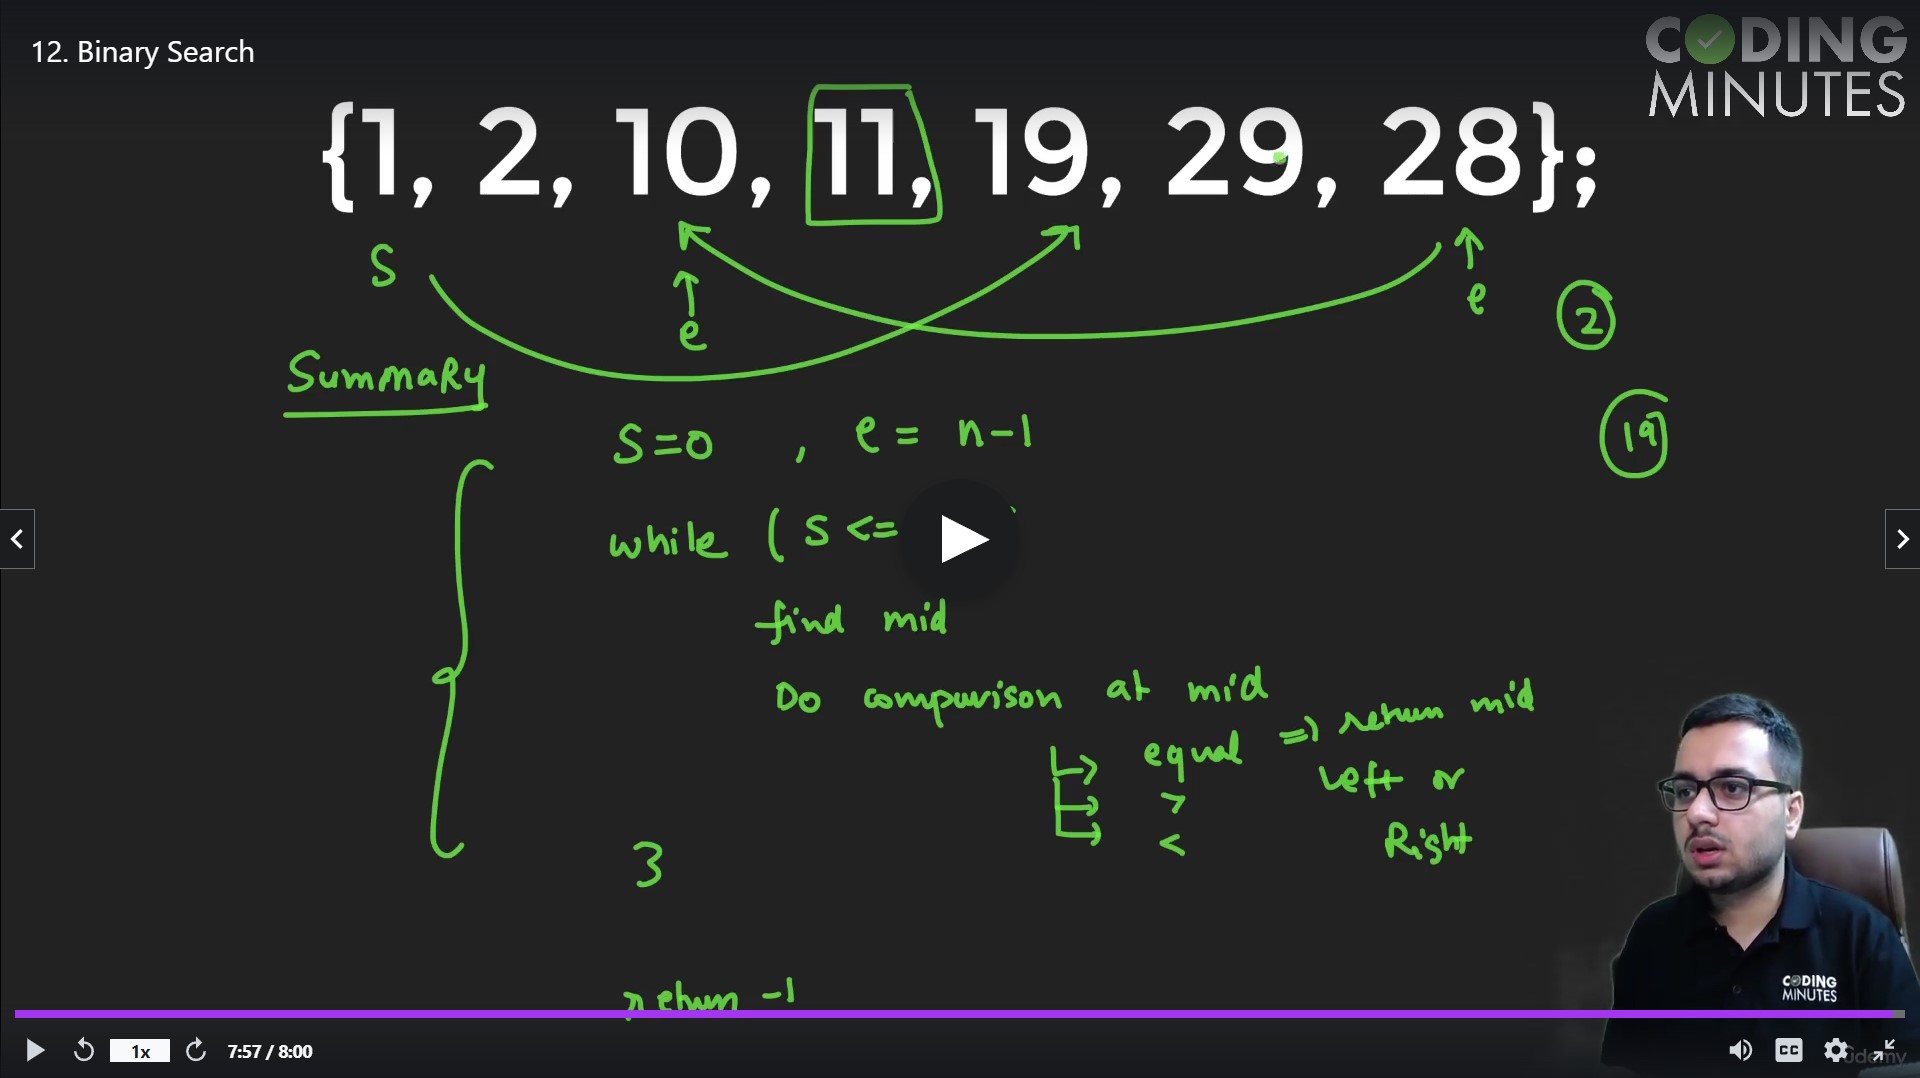 12. Binary Search
CODING
MINUTES
{1, 2, 10, 11, 19, 29, 28};
S
e
e
2
Summary
19
S=0 , e = n-1
while ( S <=
find mid
Do comparison at mid
equal => return mid
> Left or
< Right
}
CODING
MINUTES
return -1
1x
7:57 / 8:00
CC
udemy